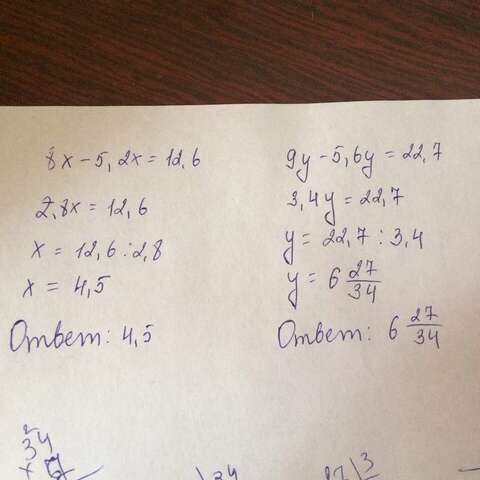 8x - 5,2x = 12,6
2,8x = 12,6
x = 12,6 : 2,8
x = 4,5
Ответ: 4,5
9y - 5,6y = 22,7
3,4y = 22,7
y = 22,7 : 3,4
y = 6 27/34
Ответ: 6 27/34
2
34
34
3